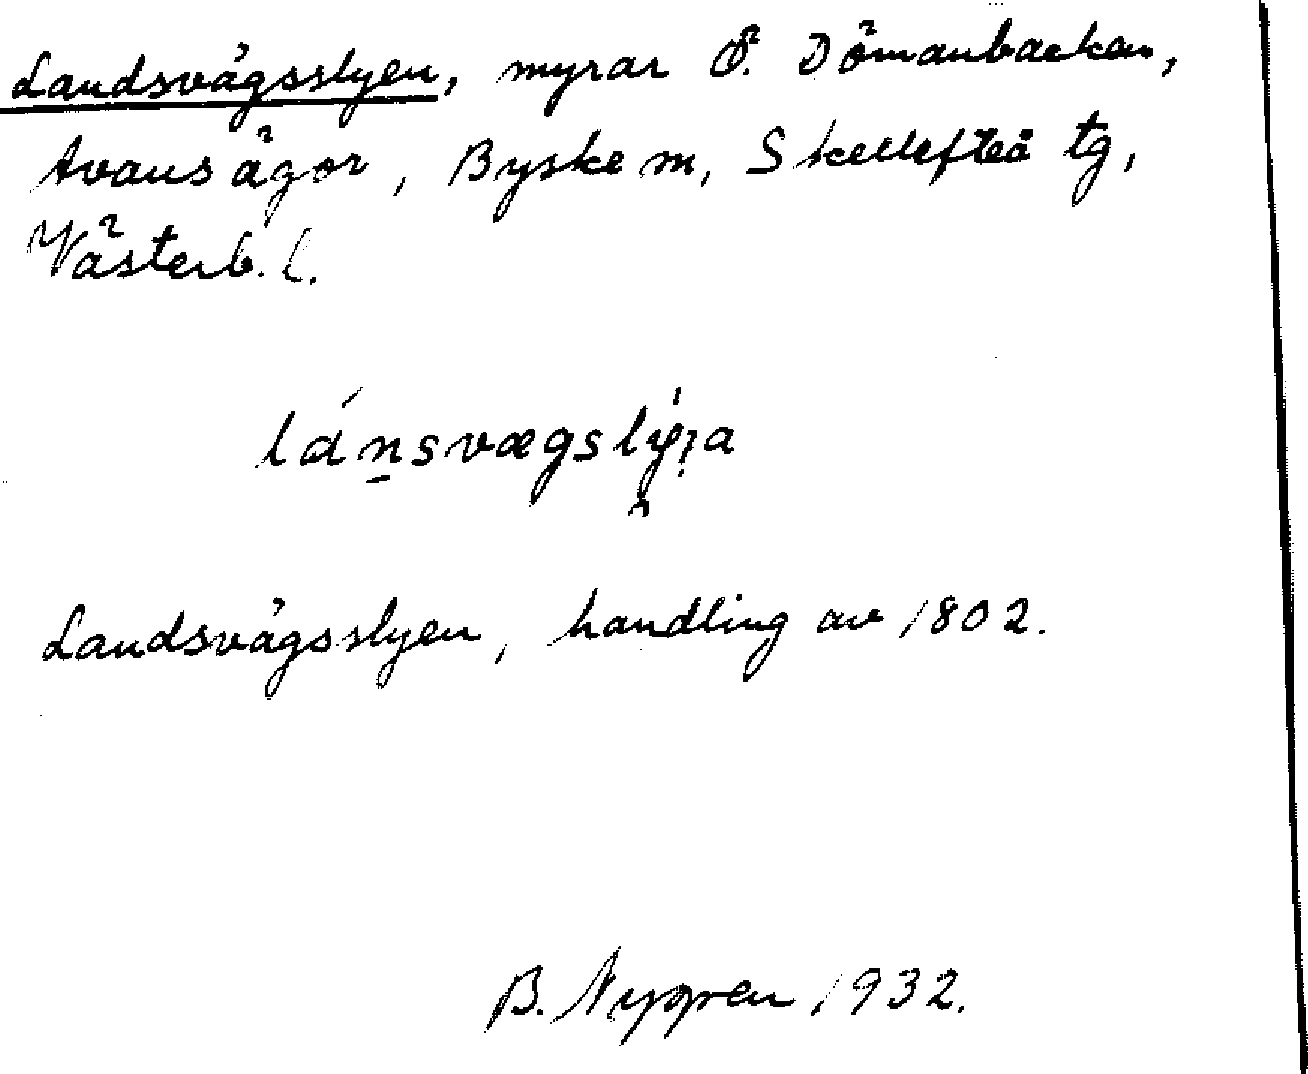 Landsvägsslyen, myrar Ö. Dömanbacken,
Avans ägor, Byske sn, Skellefteå tg,
Västerb. l.
Landsvägsslyen, handling av 1802.
B. Nygren 1932.